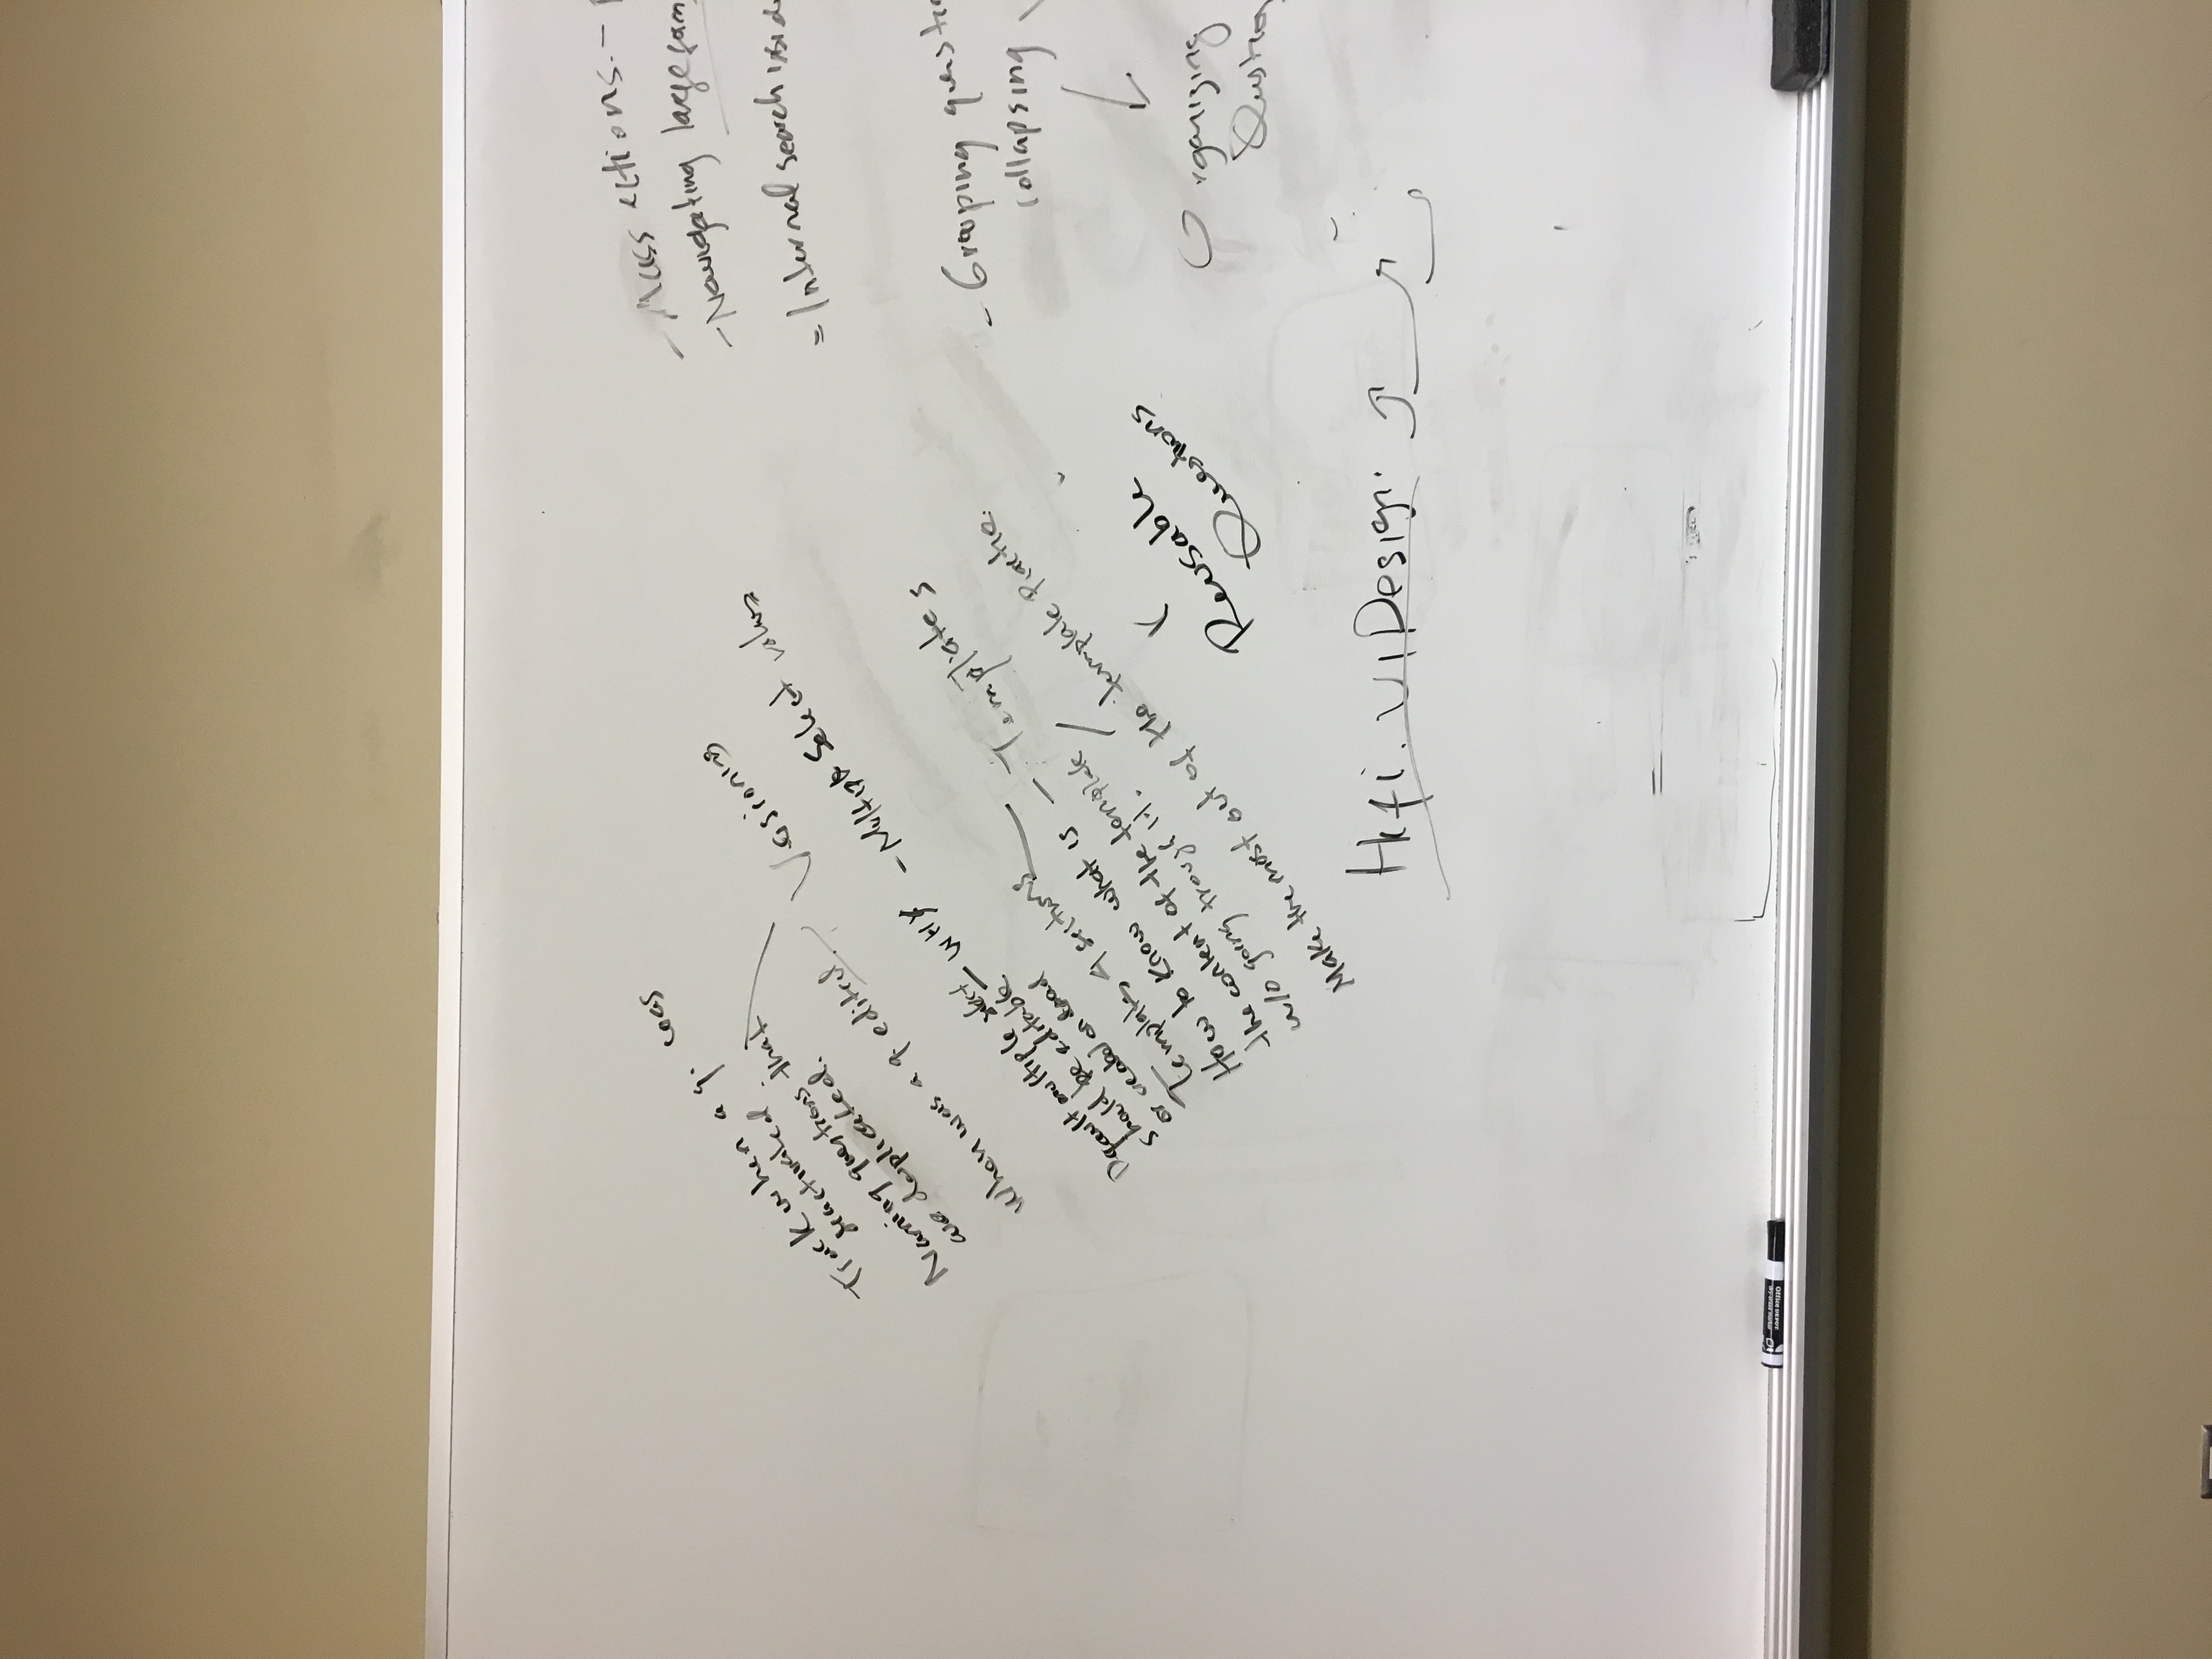 Track when a q. was
deactivated
Naming questions that
are duplicated.
When was a q. edited.
Versioning
Default multiple select
should be editable
or created on
WHY
- Multiple Select values
Templates
How to know what is
the content of the template
w/o going trough it.
- Templates
Make the most out of the template Practice.
Reusable
Questions
Hifi. UI Design.
- Mass actions. -
- Navigating large
= Internal search
- Grouping
collapsing
Organizing
Office DEPOT
dry-erase marker